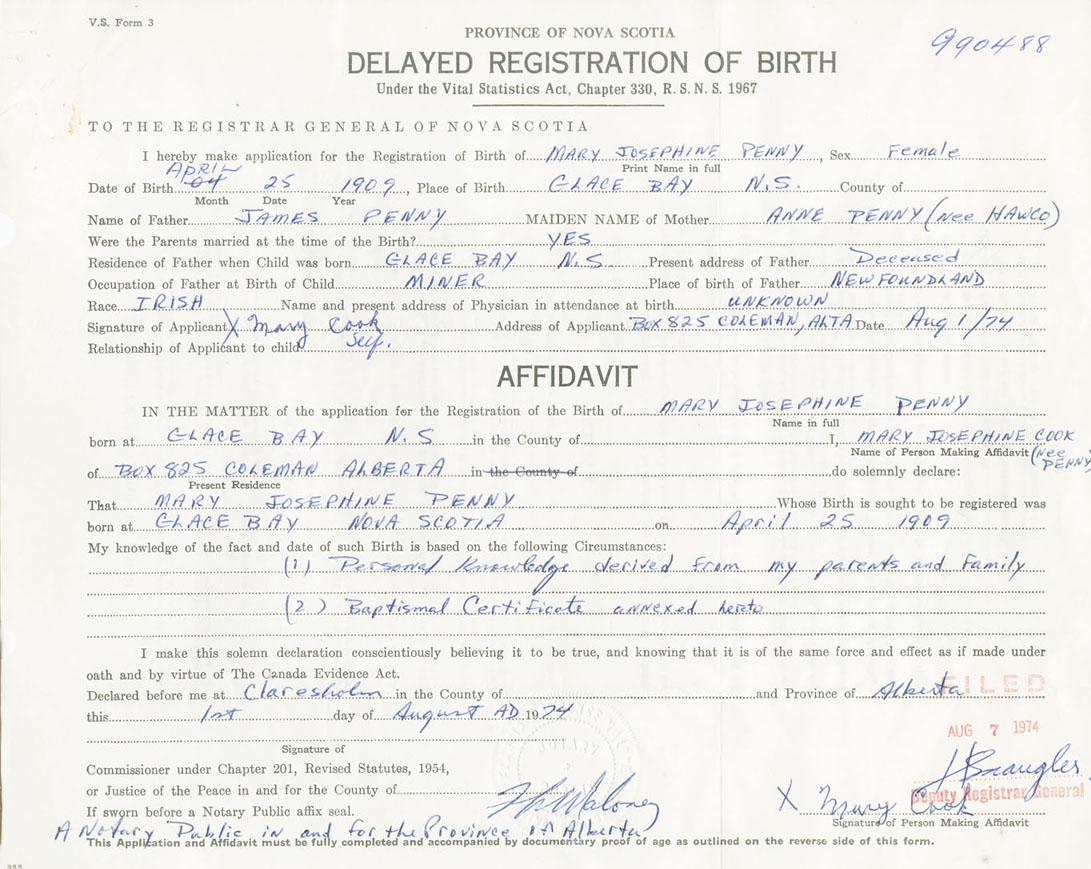 V.S. Form 3
PROVINCE OF NOVA SCOTIA
990488
DELAYED REGISTRATION OF BIRTH
Under the Vital Statistics Act, Chapter 330, R.S.N.S. 1967
TO THE REGISTRAR GENERAL OF NOVA SCOTIA
I hereby make application for the Registration of Birth of MARY JOSEPHINE PENNY, Sex Female
Print Name in full
APRIL
Date of Birth 04 25 1909, Place of Birth GLACE BAY N.S. County of
Month Date Year
Name of Father JAMES PENNY MAIDEN NAME of Mother ANNE PENNY (nee HAWCO)
Were the Parents married at the time of the Birth? YES
Residence of Father when Child was born GLACE BAY N.S Present address of Father Deceased
Occupation of Father at Birth of Child MINER Place of birth of Father NEWFOUNDLAND
Race IRISH Name and present address of Physician in attendance at birth UNKNOWN
Signature of Applicant X Mary Cook Address of Applicant BOX 825 COLEMAN, ALTA Date Aug 1/74
Relationship of Applicant to child Self.
AFFIDAVIT
IN THE MATTER of the application for the Registration of the Birth of MARY JOSEPHINE PENNY
Name in full
born at GLACE BAY N.S in the County of I, MARY JOSEPHINE COOK
Name of Person Making Affidavit (nee PENNY)
of BOX 825 COLEMAN ALBERTA in the County of do solemnly declare:
Present Residence
That MARY JOSEPHINE PENNY Whose Birth is sought to be registered was
born at GLACE BAY NOVA SCOTIA on April 25 1909
My knowledge of the fact and date of such Birth is based on the following Circumstances:
(1) Personal Knowledge derived from my parents and Family
(2) Baptismal Certificate annexed hereto
I make this solemn declaration conscientiously believing it to be true, and knowing that it is of the same force and effect as if made under
oath and by virtue of The Canada Evidence Act.
Declared before me at Claresholm in the County of and Province of Alberta
FILED
this 1st day of August AD 1974
AUG 7 1974
Signature of
Commissioner under Chapter 201, Revised Statutes, 1954,
or Justice of the Peace in and for the County of
Deputy Registrar General
If sworn before a Notary Public affix seal.
X Mary Cook
A Notary Public in and for the Province of Alberta
Signature of Person Making Affidavit
This Application and Affidavit must be fully completed and accompanied by documentary proof of age as outlined on the reverse side of this form.